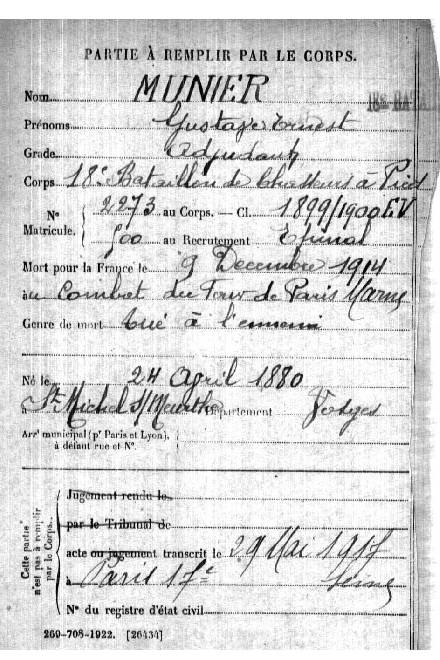 PARTIE À REMPLIR PAR LE CORPS.
Nom MUNIER
18e BATA
Prénoms Gustave Ernest
Grade Adjudant
Corps 18e Bataillon de Chasseurs à Pied
N° Matricule. 2273 au Corps. — Cl. 1899/1900 EV
500 au Recrutement Epinal
Mort pour la France le 9 Decembre 1914
à au Combat du Four de Paris Marne
Genre de mort tué à l'ennemi
Né le 24 April 1880
à St Michel S/ Meurthe Département Vosges
Arrt municipal (pr Paris et Lyon),
à défaut rue et N°.
Cette partie
n'est pas à remplir
par le Corps.
Jugement rendu le
par le Tribunal de
acte ou jugement transcrit le 29 Mai 1917
à Paris 17e Seine
N° du registre d'état civil
269-708-1922. [26434]